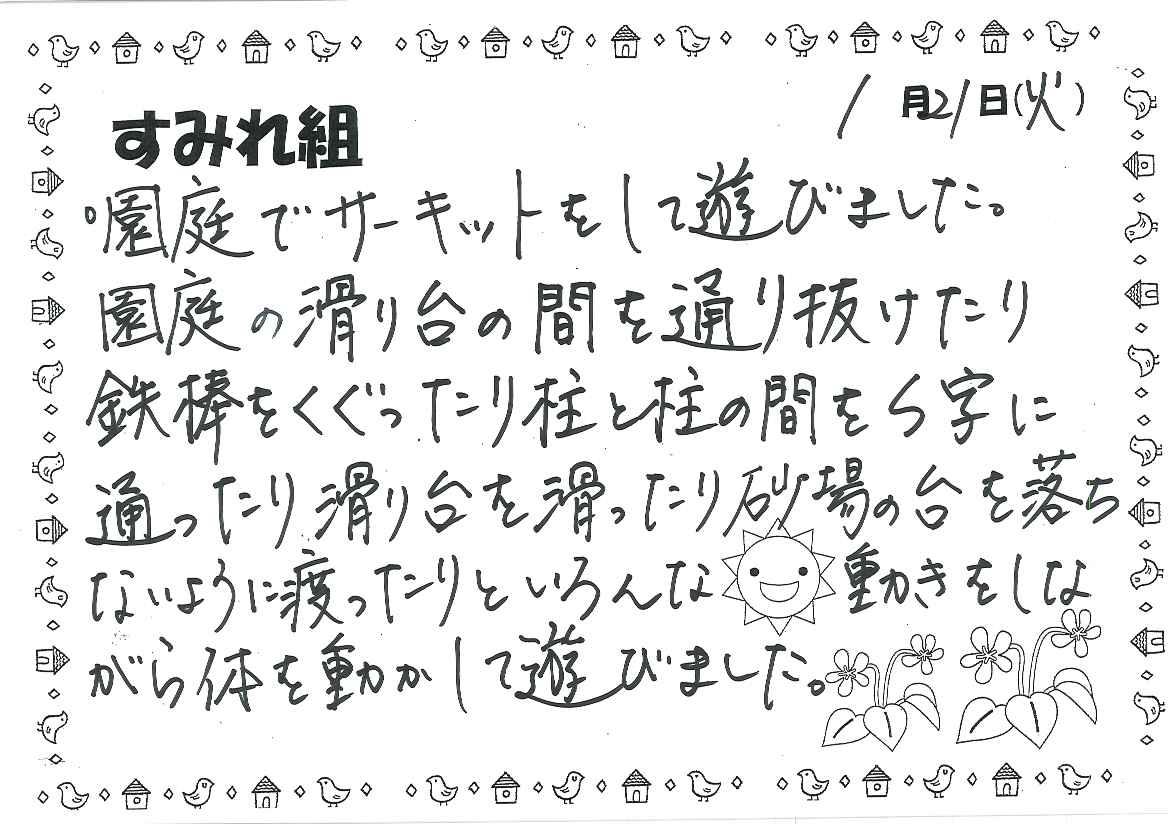 1月21日(火)
すみれ組
○園庭でサーキットをして遊びました。
園庭の滑り台の間を通り抜けたり
鉄棒をくぐったり柱と柱の間をS字に
通ったり滑り台を滑ったり砂場の台を落ち
ないように渡ったりといろんな動きをしな
がら体を動かして遊びました。